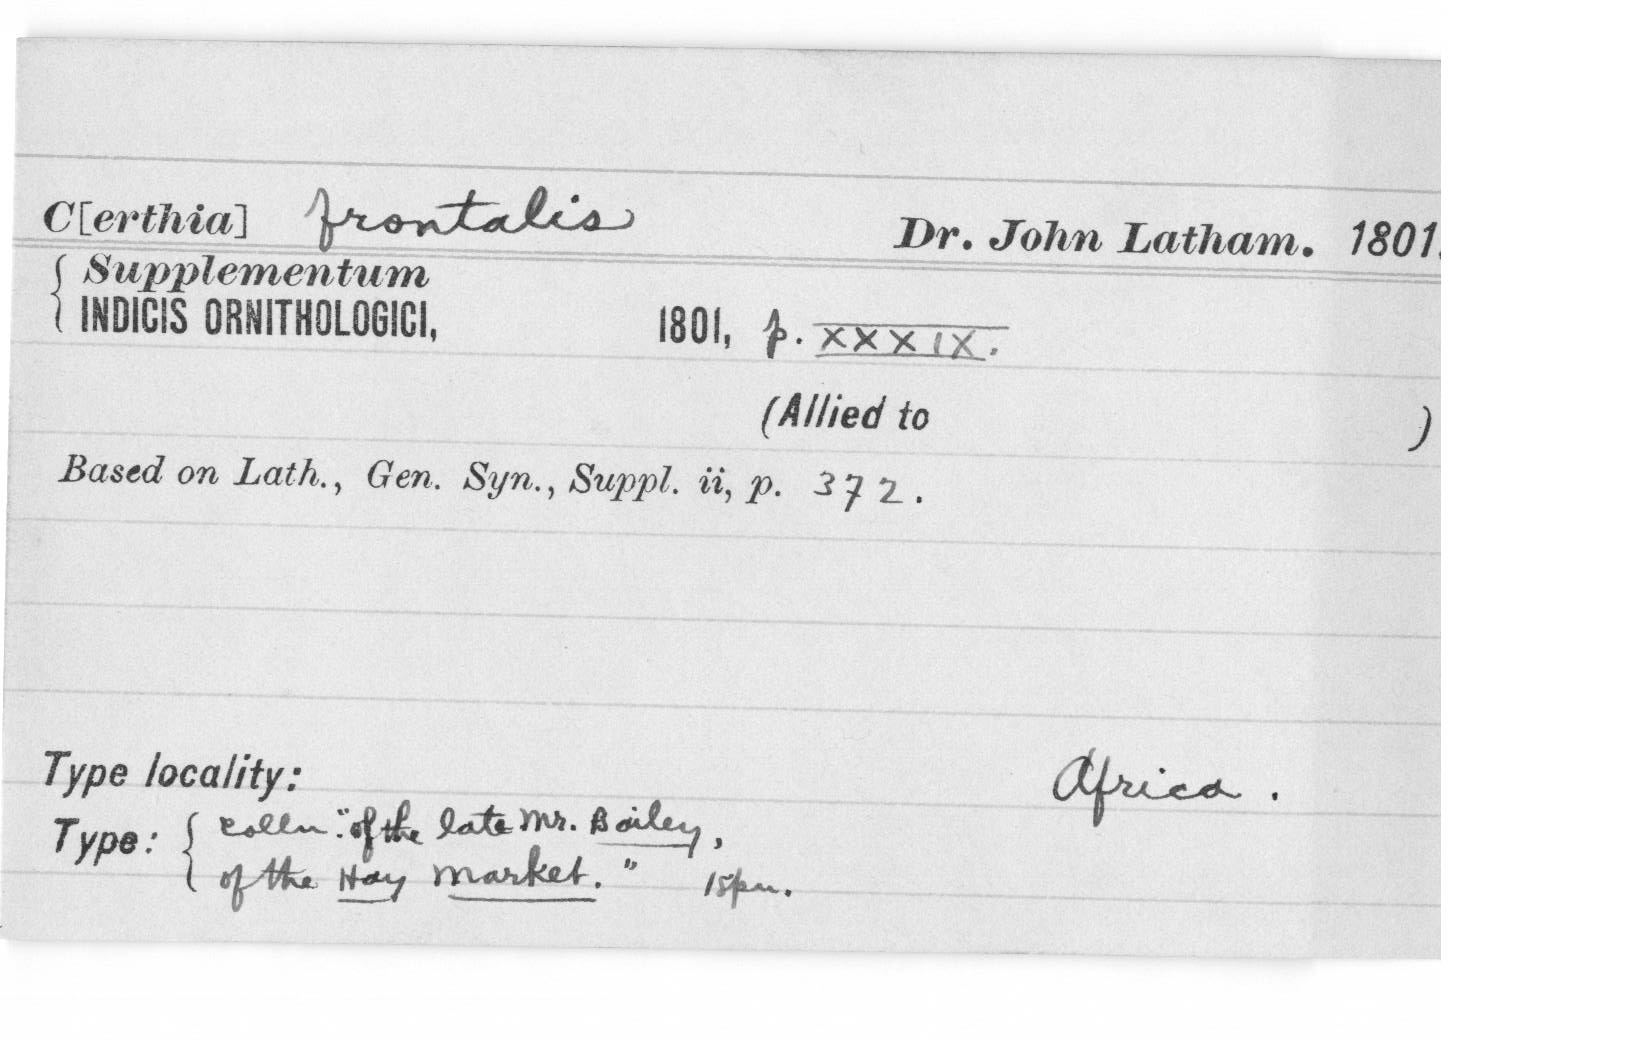 C[erthia] frontalis Dr. John Latham. 1801.
Supplementum
INDICIS ORNITHOLOGICI, 1801, p. XXXIX.
(Allied to )
Based on Lath., Gen. Syn., Suppl. ii, p. 372.
Type locality: Africa.
Type: Colln. "of the late Mr. Bailey,
of the Hay Market." 1spm.